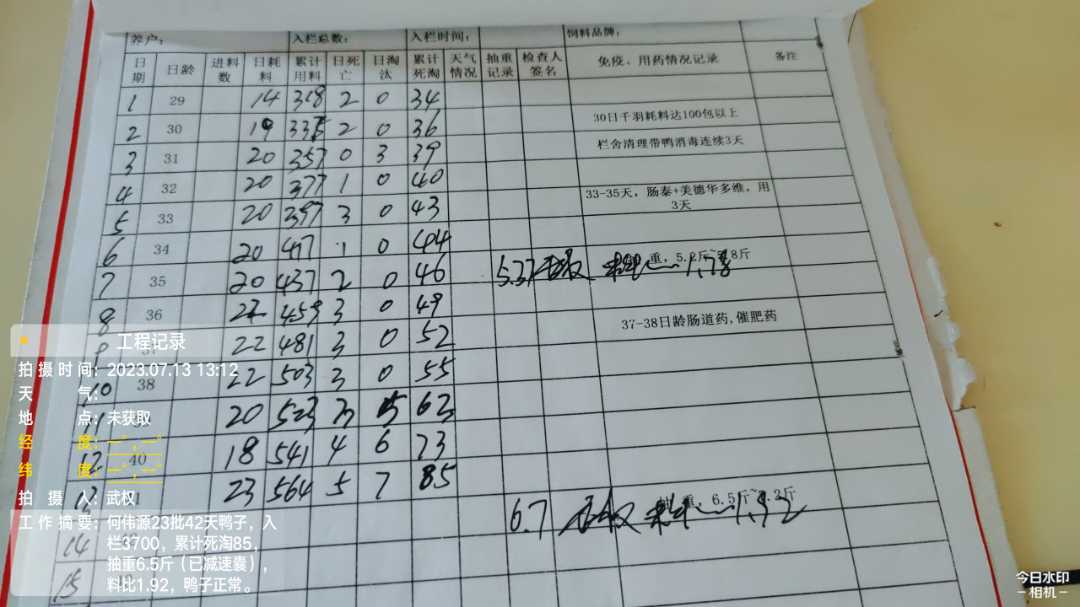 养户: 入栏总数: 入栏时间: 饲料品牌:
日期 日龄 进料数 日耗料 累计用料 日死亡 日淘汰 累计死淘 天气情况 抽重记录 检查人签名 免疫、用药情况记录 备注
1 29 14 318 2 0 34
30日千羽耗料达100包以上
2 30 19 335 2 0 36
栏舍清理带鸭消毒连续3天
3 31 20 357 0 3 39
4 32 20 377 1 0 40
33-35天，肠泰+美德华多维，用3天
5 33 20 397 3 0 43
6 34 20 417 1 0 44
重，5.2斤 8斤
7 35 20 437 2 0 46 5.37 1.78
8 36 22 459 3 0 49
37-38日龄肠道药,催肥药
9 37 22 481 3 0 52
10 38 22 503 3 0 55
11 20 523 3 5 63
12 40 18 541 4 6 73
13 23 564 5 7 85
重，6.5斤 斤
6.7 1.92
14
15
工程记录
拍摄时间: 2023.07.13 13:12
天气:
地点: 未获取
经度: —°,—°
纬度: —°,—°
拍摄人: 武权
工作摘要: 何伟源23批42天鸭子，入
栏3700，累计死淘85，
抽重6.5斤（已减速囊），
料比1.92，鸭子正常。
今日水印
-相机-